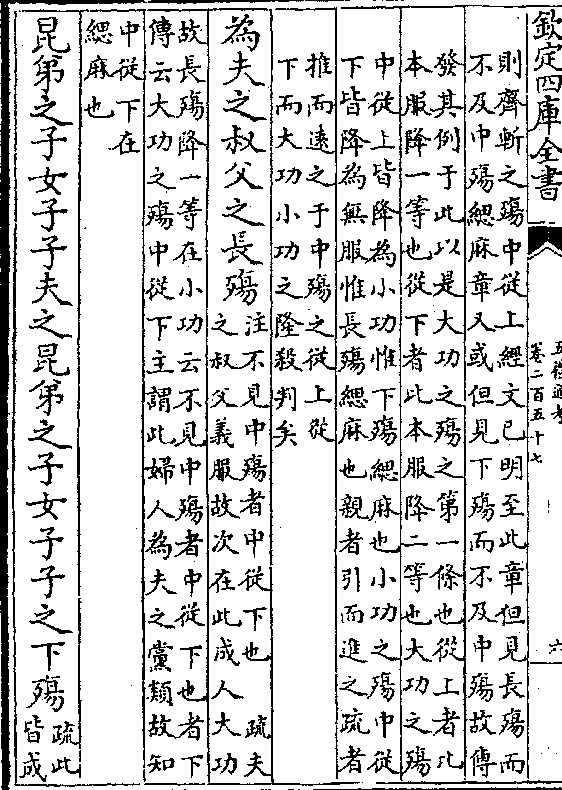 欽定四庫全書
五禮通考
卷二百五十七
六
則齊斬之殤中從上經文已明至此章但見長殤而
不及中殤緦麻章又或但見下殤而不及中殤故傳
發其例于此以是大功之殤之第一條也從上者比
本服降一等也從下者此本服降二等也大功之殤
中從上皆降為小功惟下殤緦麻也小功之殤中從
下皆降為無服惟長殤緦麻也親者引而進之疏者
推而遠之于中殤之從上從
下而大功小功之隆殺判矣
為夫之叔父之長殤
注不見中殤者中從下也 疏夫
之叔父義服故次在此成人大功
故長殤降一等在小功云不見中殤者中從下也者下
傳云大功之殤中從下主謂此婦人為夫之黨類故知
中從下在
緦麻也
昆弟之子女子子夫之昆弟之子女子子之下殤
疏此
皆成